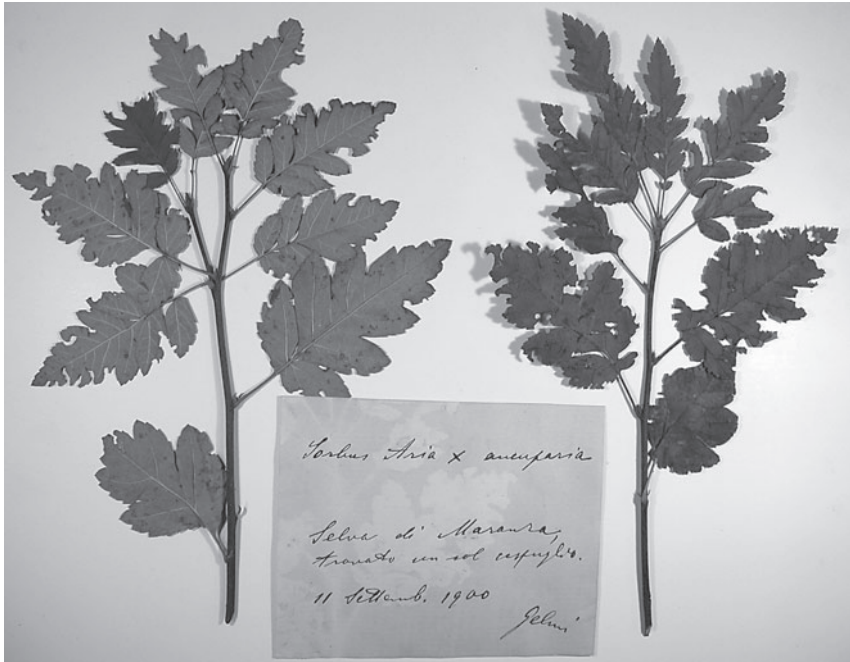 Sorbus Aria x aucuparia
Selva di Maranza,
trovato un sol cespuglio.
11 Settemb. 1900
Gelmi